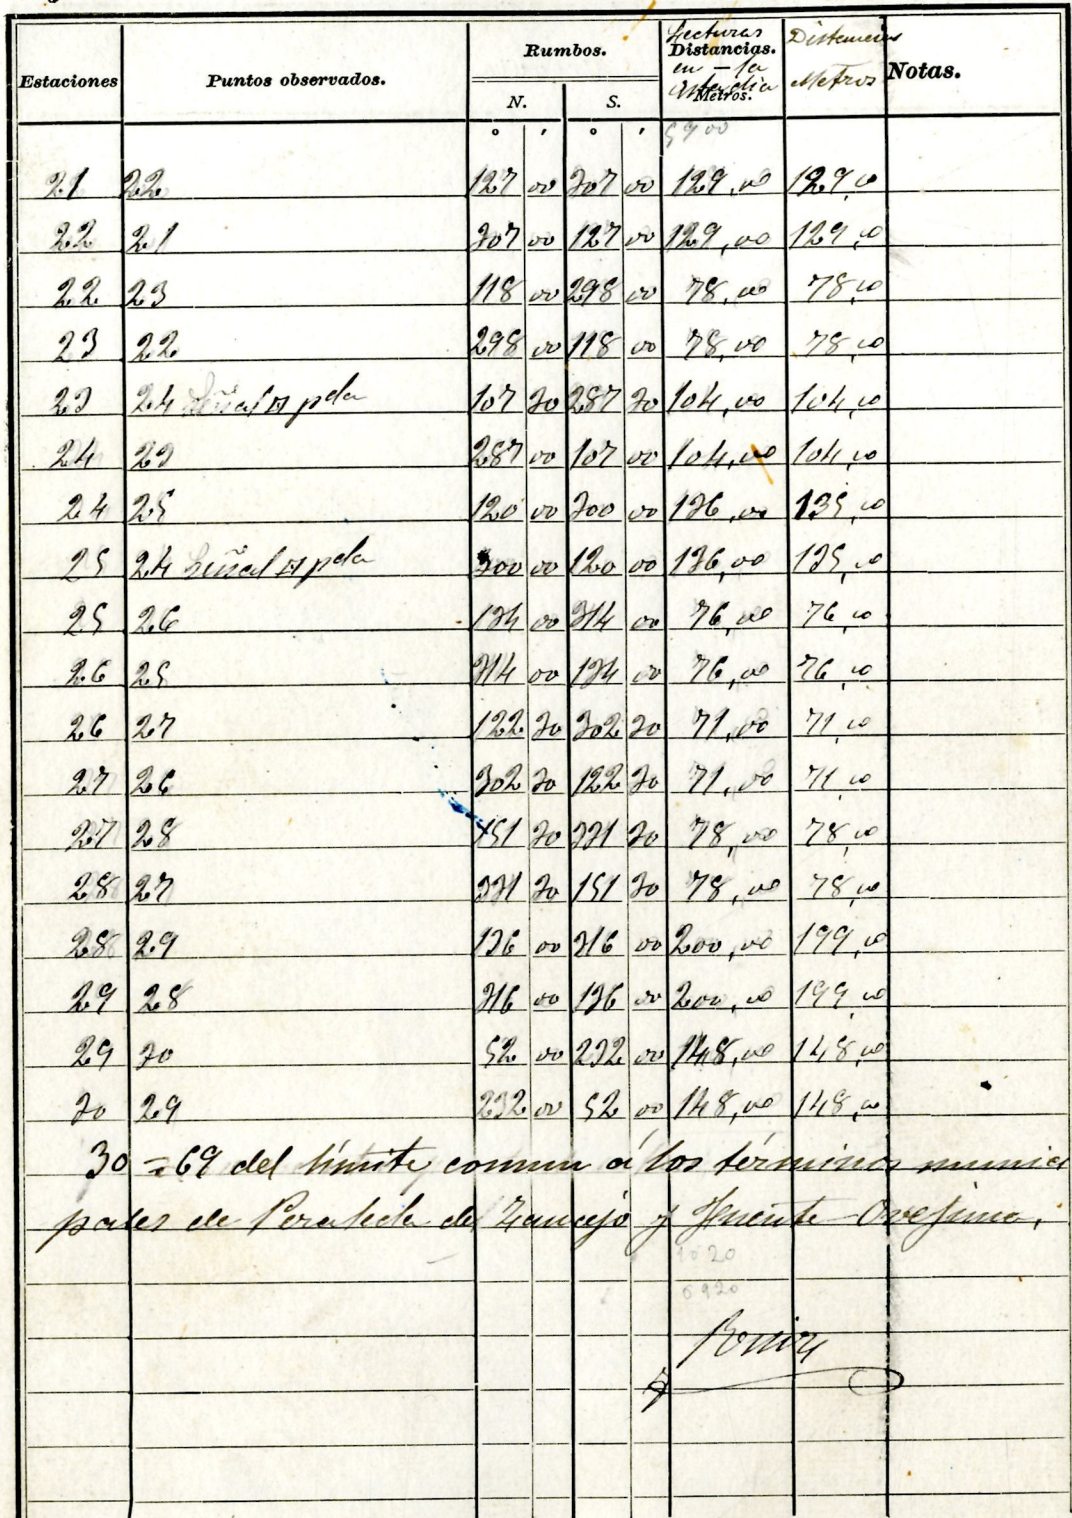 Estaciones Puntos observados. Rumbos. N. S. Lecturas Distancias. en la estadia Metros. Distancias Metros Notas.
° ' ° ' 5900
21 22 127 00 307 00 129,00 129,00
22 21 307 00 127 00 129,00 129,00
22 23 118 00 298 00 78,00 78,00
23 22 298 00 118 00 78,00 78,00
23 24 Señal pda 107 30 287 30 104,00 104,00
24 23 287 00 107 00 104,00 104,00
24 25 120 00 300 00 136,00 135,00
25 24 Señal pda 300 00 120 00 136,00 135,00
25 26 134 00 314 00 76,00 76,00
26 25 314 00 134 00 76,00 76,00
26 27 122 30 302 30 71,00 71,00
27 26 302 30 122 30 71,00 71,00
27 28 151 30 331 30 78,00 78,00
28 27 331 30 151 30 78,00 78,00
28 29 136 00 316 00 200,00 199,00
29 28 316 00 136 00 200,00 199,00
29 30 52 00 232 00 148,00 148,00
30 29 232 00 52 00 148,00 148,00
30 = 69 del límite comun á los términos munici
pales de Peraleda de Zaucejo y Fuente Ovejuna.
1020
6920